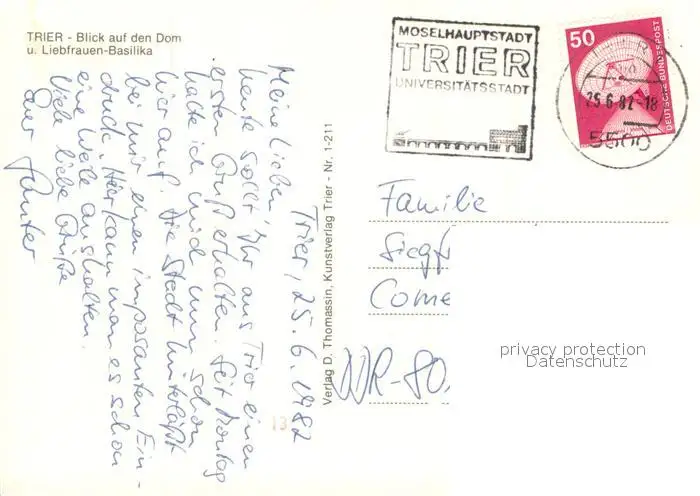 TRIER - Blick auf den Dom
u. Liebfrauen-Basilika
Trier, 25.6.1982
Meine Lieben,
heute sollt Ihr aus Trier einen
ersten Gruß erhalten. Seit Montag
halte ich mich nun schon
hier auf. Die Stadt hinterläßt
bei mir einen imposanten Ein-
druck. Hier kann man es schon
eine Weile aushalten.
Viele liebe Grüße
Euer Günter
Verlag D. Thomassin, Kunstverlag Trier - Nr. 1-211
MOSELHAUPTSTADT
TRIER
UNIVERSITÄTSSTADT
50
DEUTSCHE BUNDESPOST
25.6.82-18
5500
Familie
Siegf
Come
WR-80
privacy protection
Datenschutz